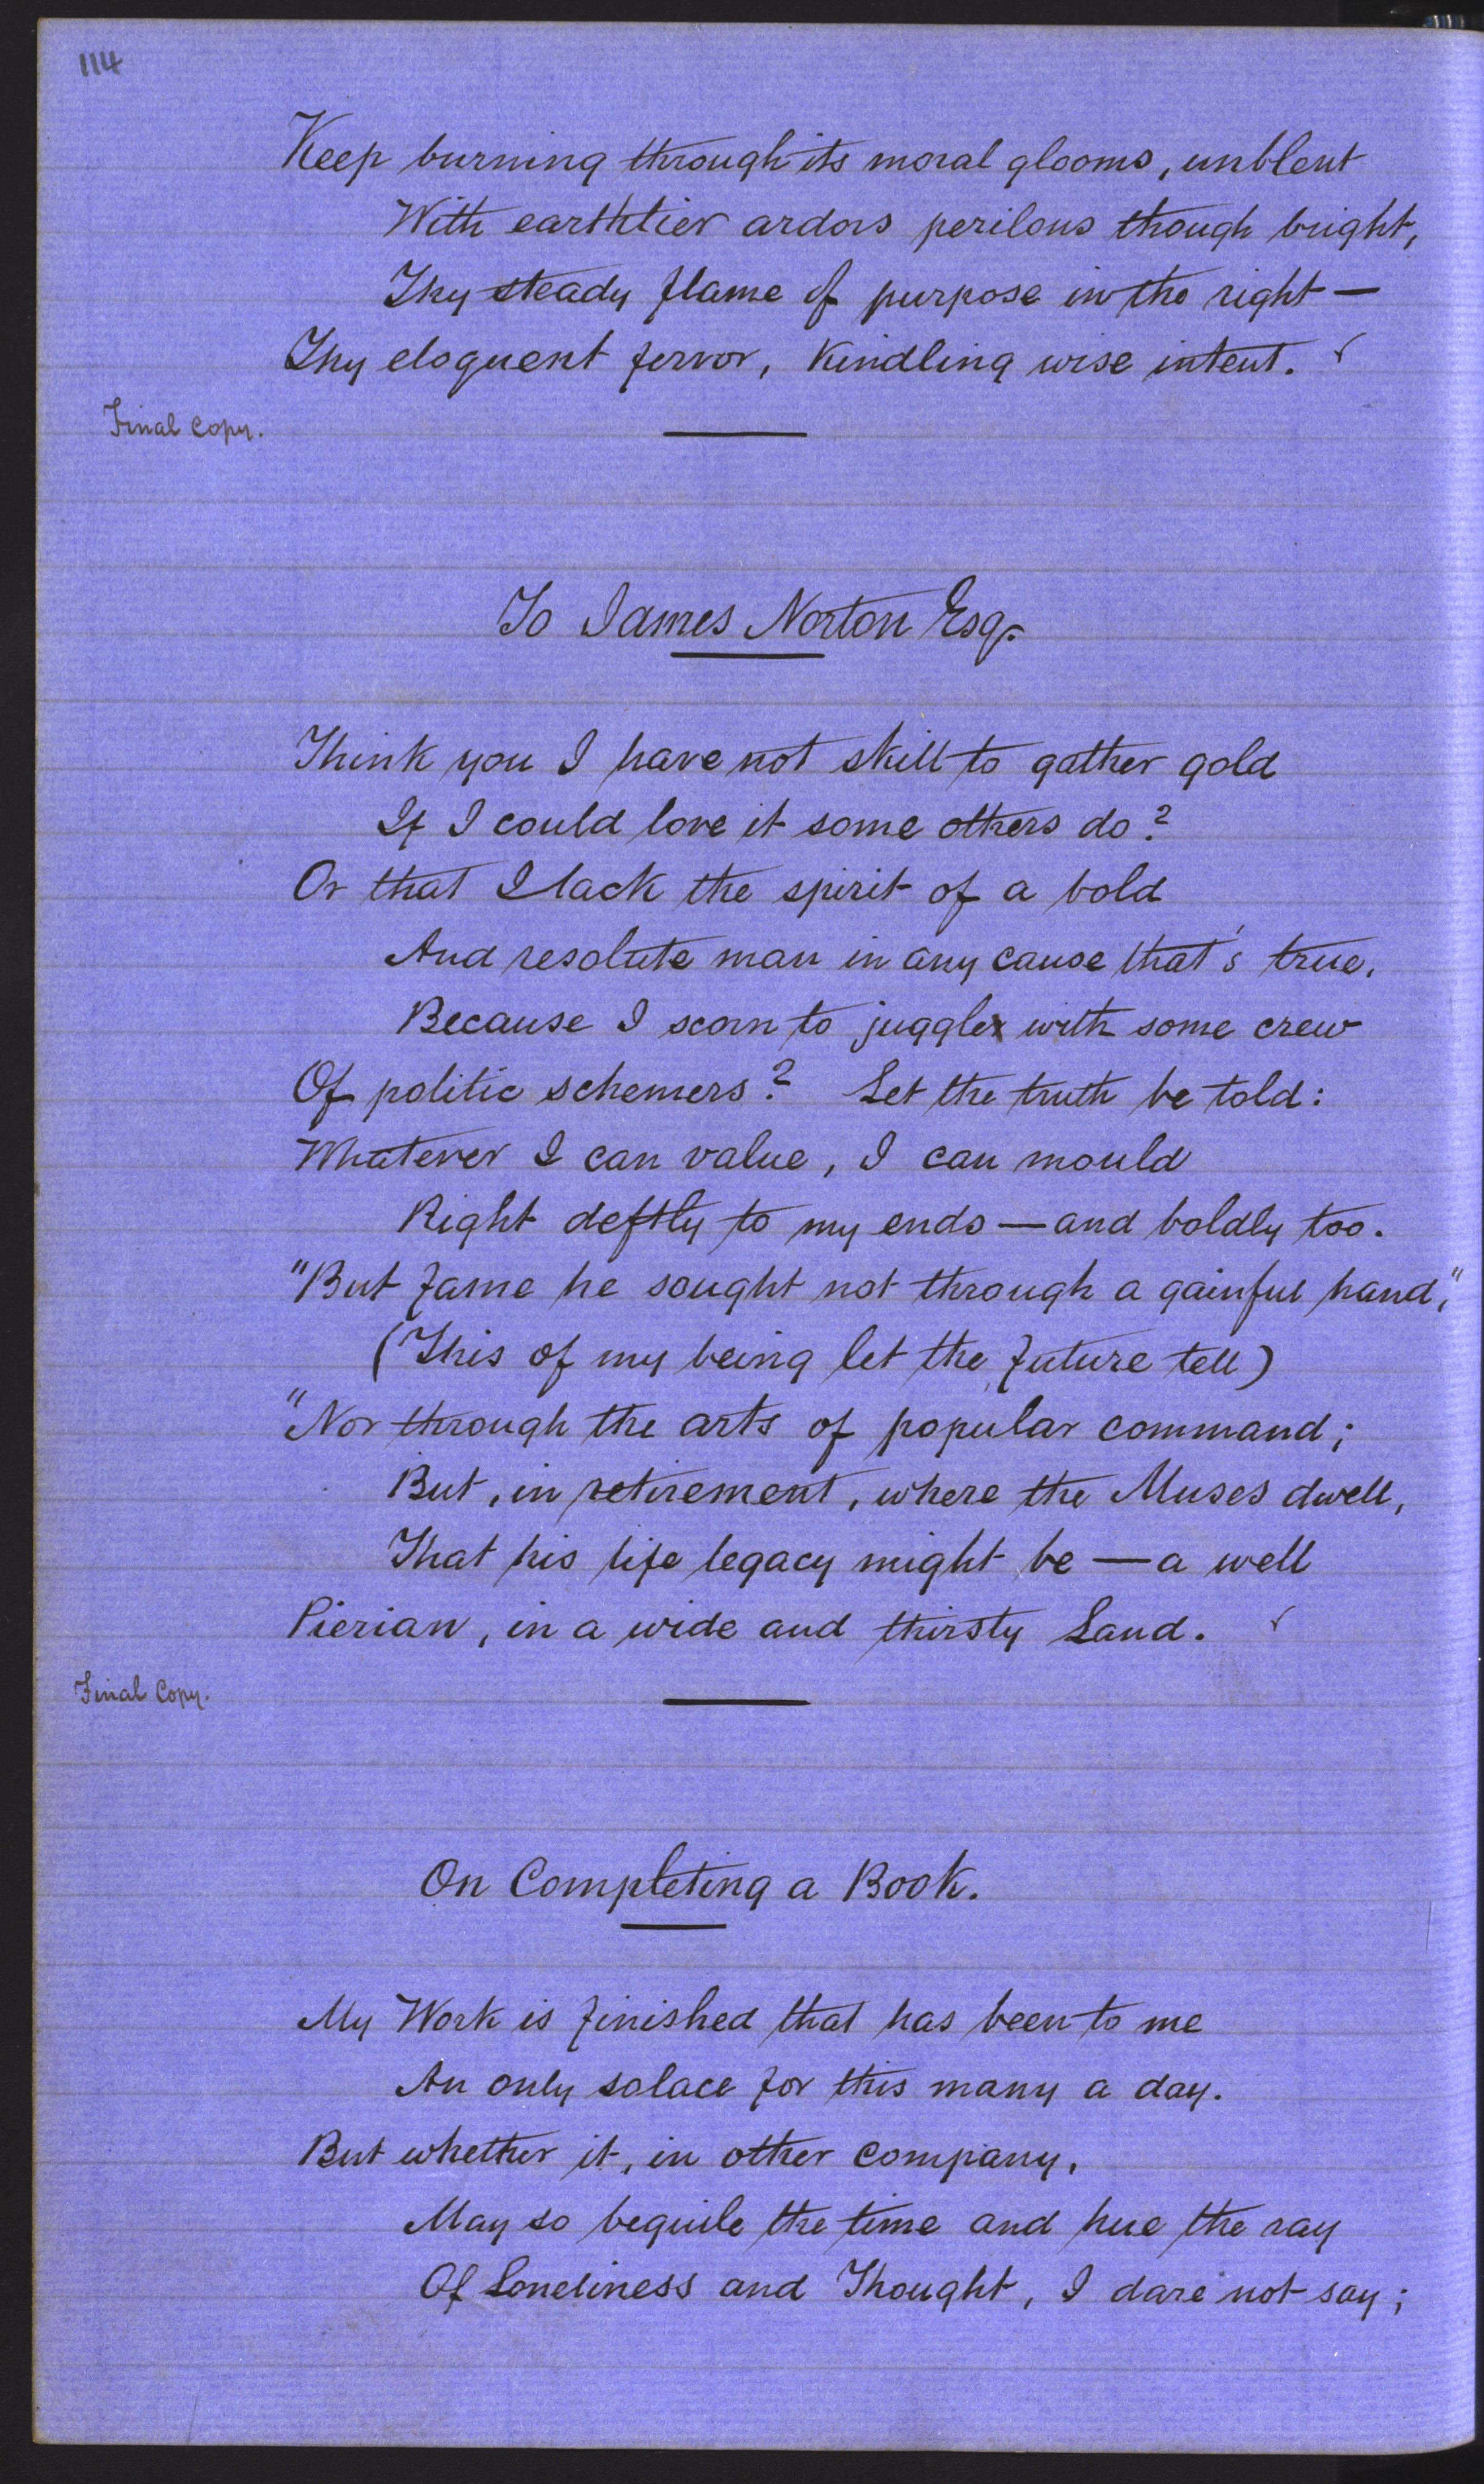 114
Keep burning through its moral glooms, unblent
With earthlier ardors perilous though bright,
Thy steady flame of purpose in the right —
Thy eloquent fervor, kindling wise intent. ✓
Final copy.
To James Norton Esq.
Think you I have not skill to gather gold
If I could love it some others do?
Or that I lack the spirit of a bold
And resolute man in any cause that's true,
Because I scorn to juggle with some crew
Of politic schemers? Let the truth be told:
Whatever I can value, I can mould
Right deftly to my ends — and boldly too.
"But fame he sought not through a gainful hand,"
(This of my being let the future tell)
"Nor through the arts of popular command;
But, in retirement, where the Muses dwell,
That his life legacy might be — a well
Pierian, in a wide and thirsty Land. ✓
Final Copy.
On Completing a Book.
My Work is finished that has been to me
An only solace for this many a day.
But whether it, in other company,
May so beguile the time and hue the ray
Of Loneliness and Thought, I dare not say;